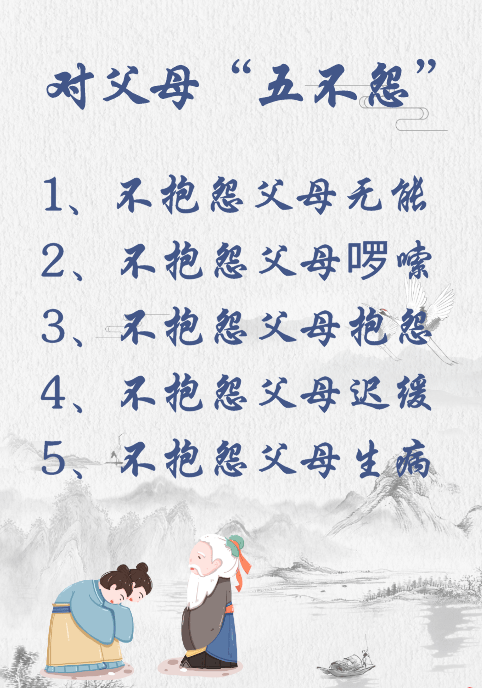 对父母“五不怨”
1、不抱怨父母无能
2、不抱怨父母啰嗦
3、不抱怨父母抱怨
4、不抱怨父母迟缓
5、不抱怨父母生病